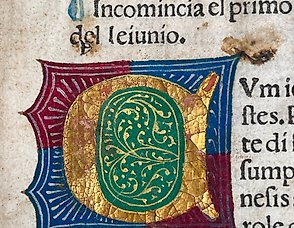 Incomincia el primo
del Ieiunio.
C Vm ie
stes. E
te di s
sump
nesis
role